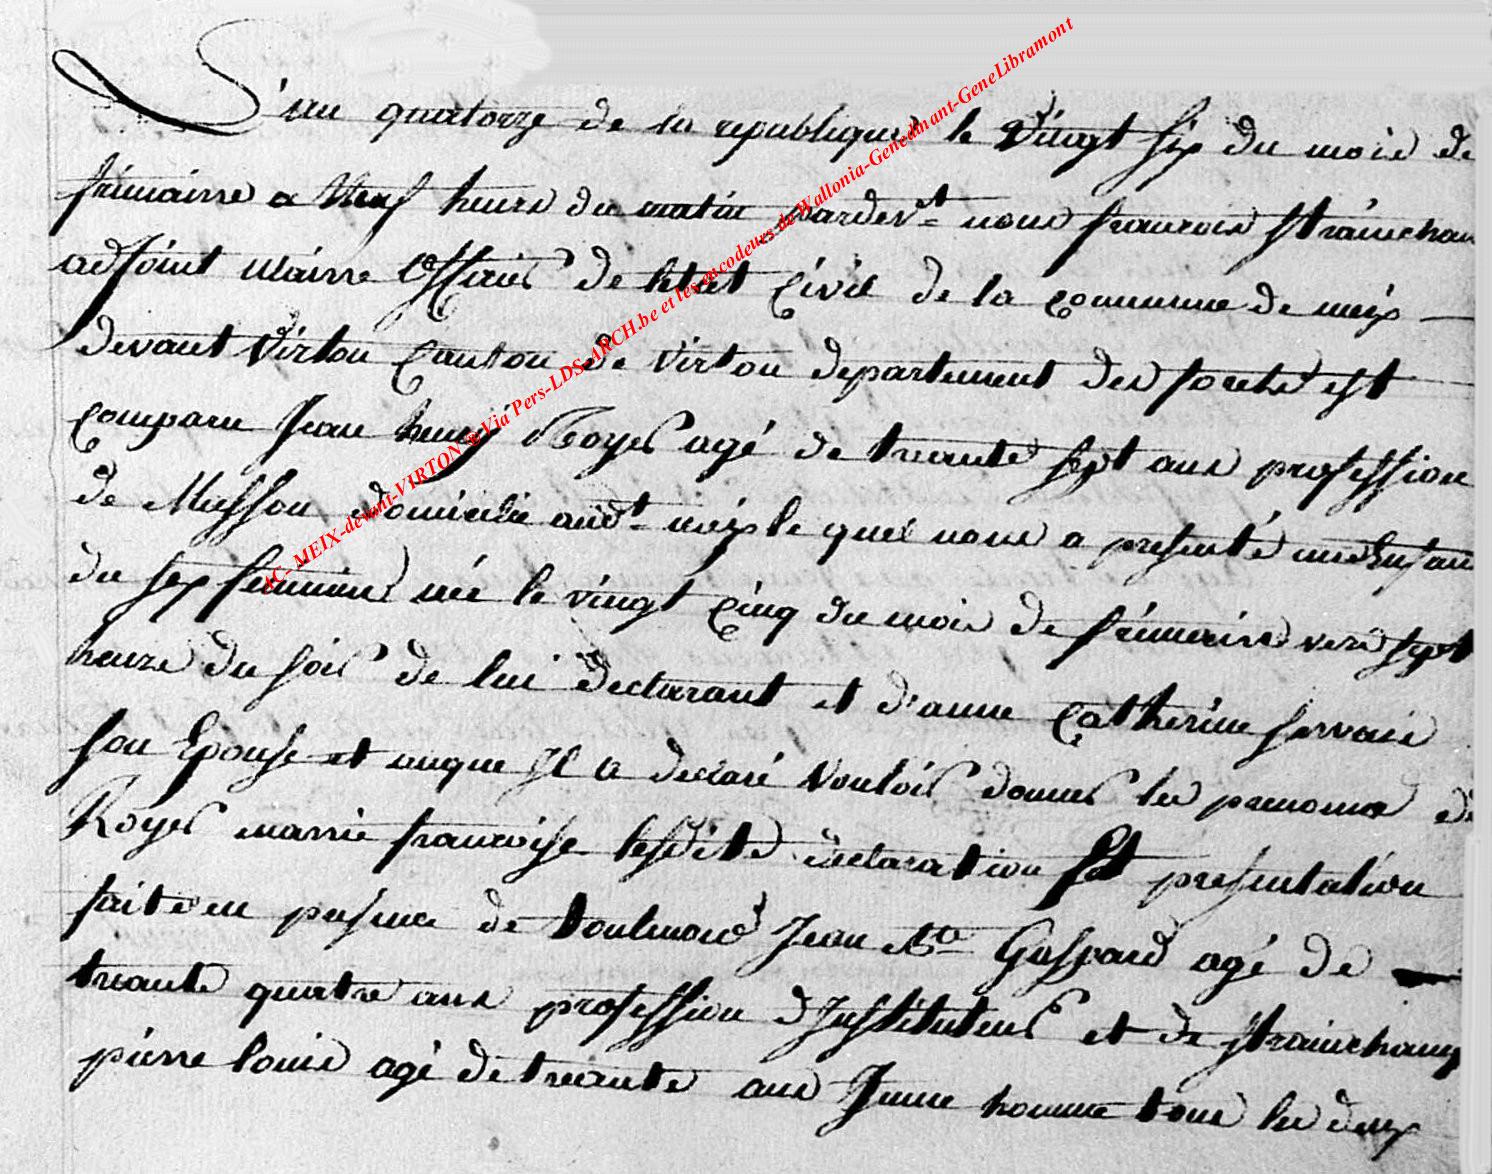 L'an quatorze de la republique le vingt six du mois de
frimairre a Neuf heurs du matin pardevt nous francois strainchan
adjoint mairre Officier de letat Civil de la commune de meix
devant virton Canton de virton departement des forets est
comparu Jean henry Royer agé de treante sept ans profession
de Musson domicilié audt meix le quel nous a presenté un Enfan
du sex feminin née le vingt Cinq du mois de frimairre vers sept
heure du soir de lui declarant et d'anne Catherine servais
son Epouse et auque Il a declaré vouloir donner les prenoms de
Royer marrie francoise lesdite declaration Et presentation
faite en presence de toulmond Jean Bte Gaspard agé de
treante quatre ans profession d'Instituteur et de strainchamp
pierre louis agé de treante ans Jeune homme tous les deux
AC- MEIX-devant-VIRTON Via Pers-LDS-ARCH.be et les encodeurs de Wallonia-Genedinant-GeneLibramont